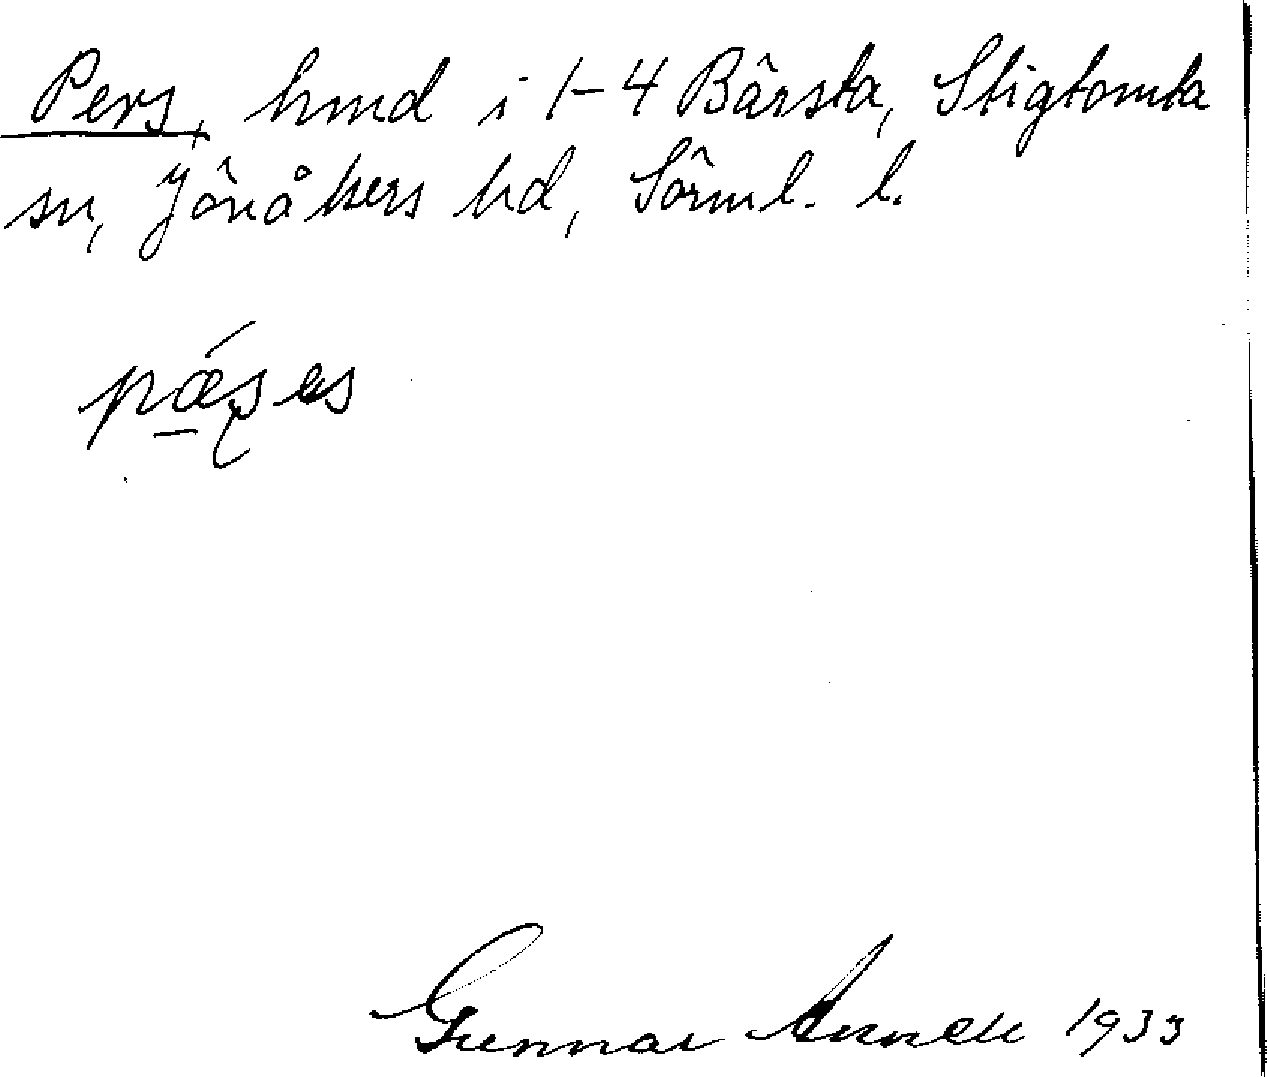 Pers, hmd i 1-4 Bärsta, Stigtomta
sn, Jönåkers hd, Sörml. l.
Gunnar 1933